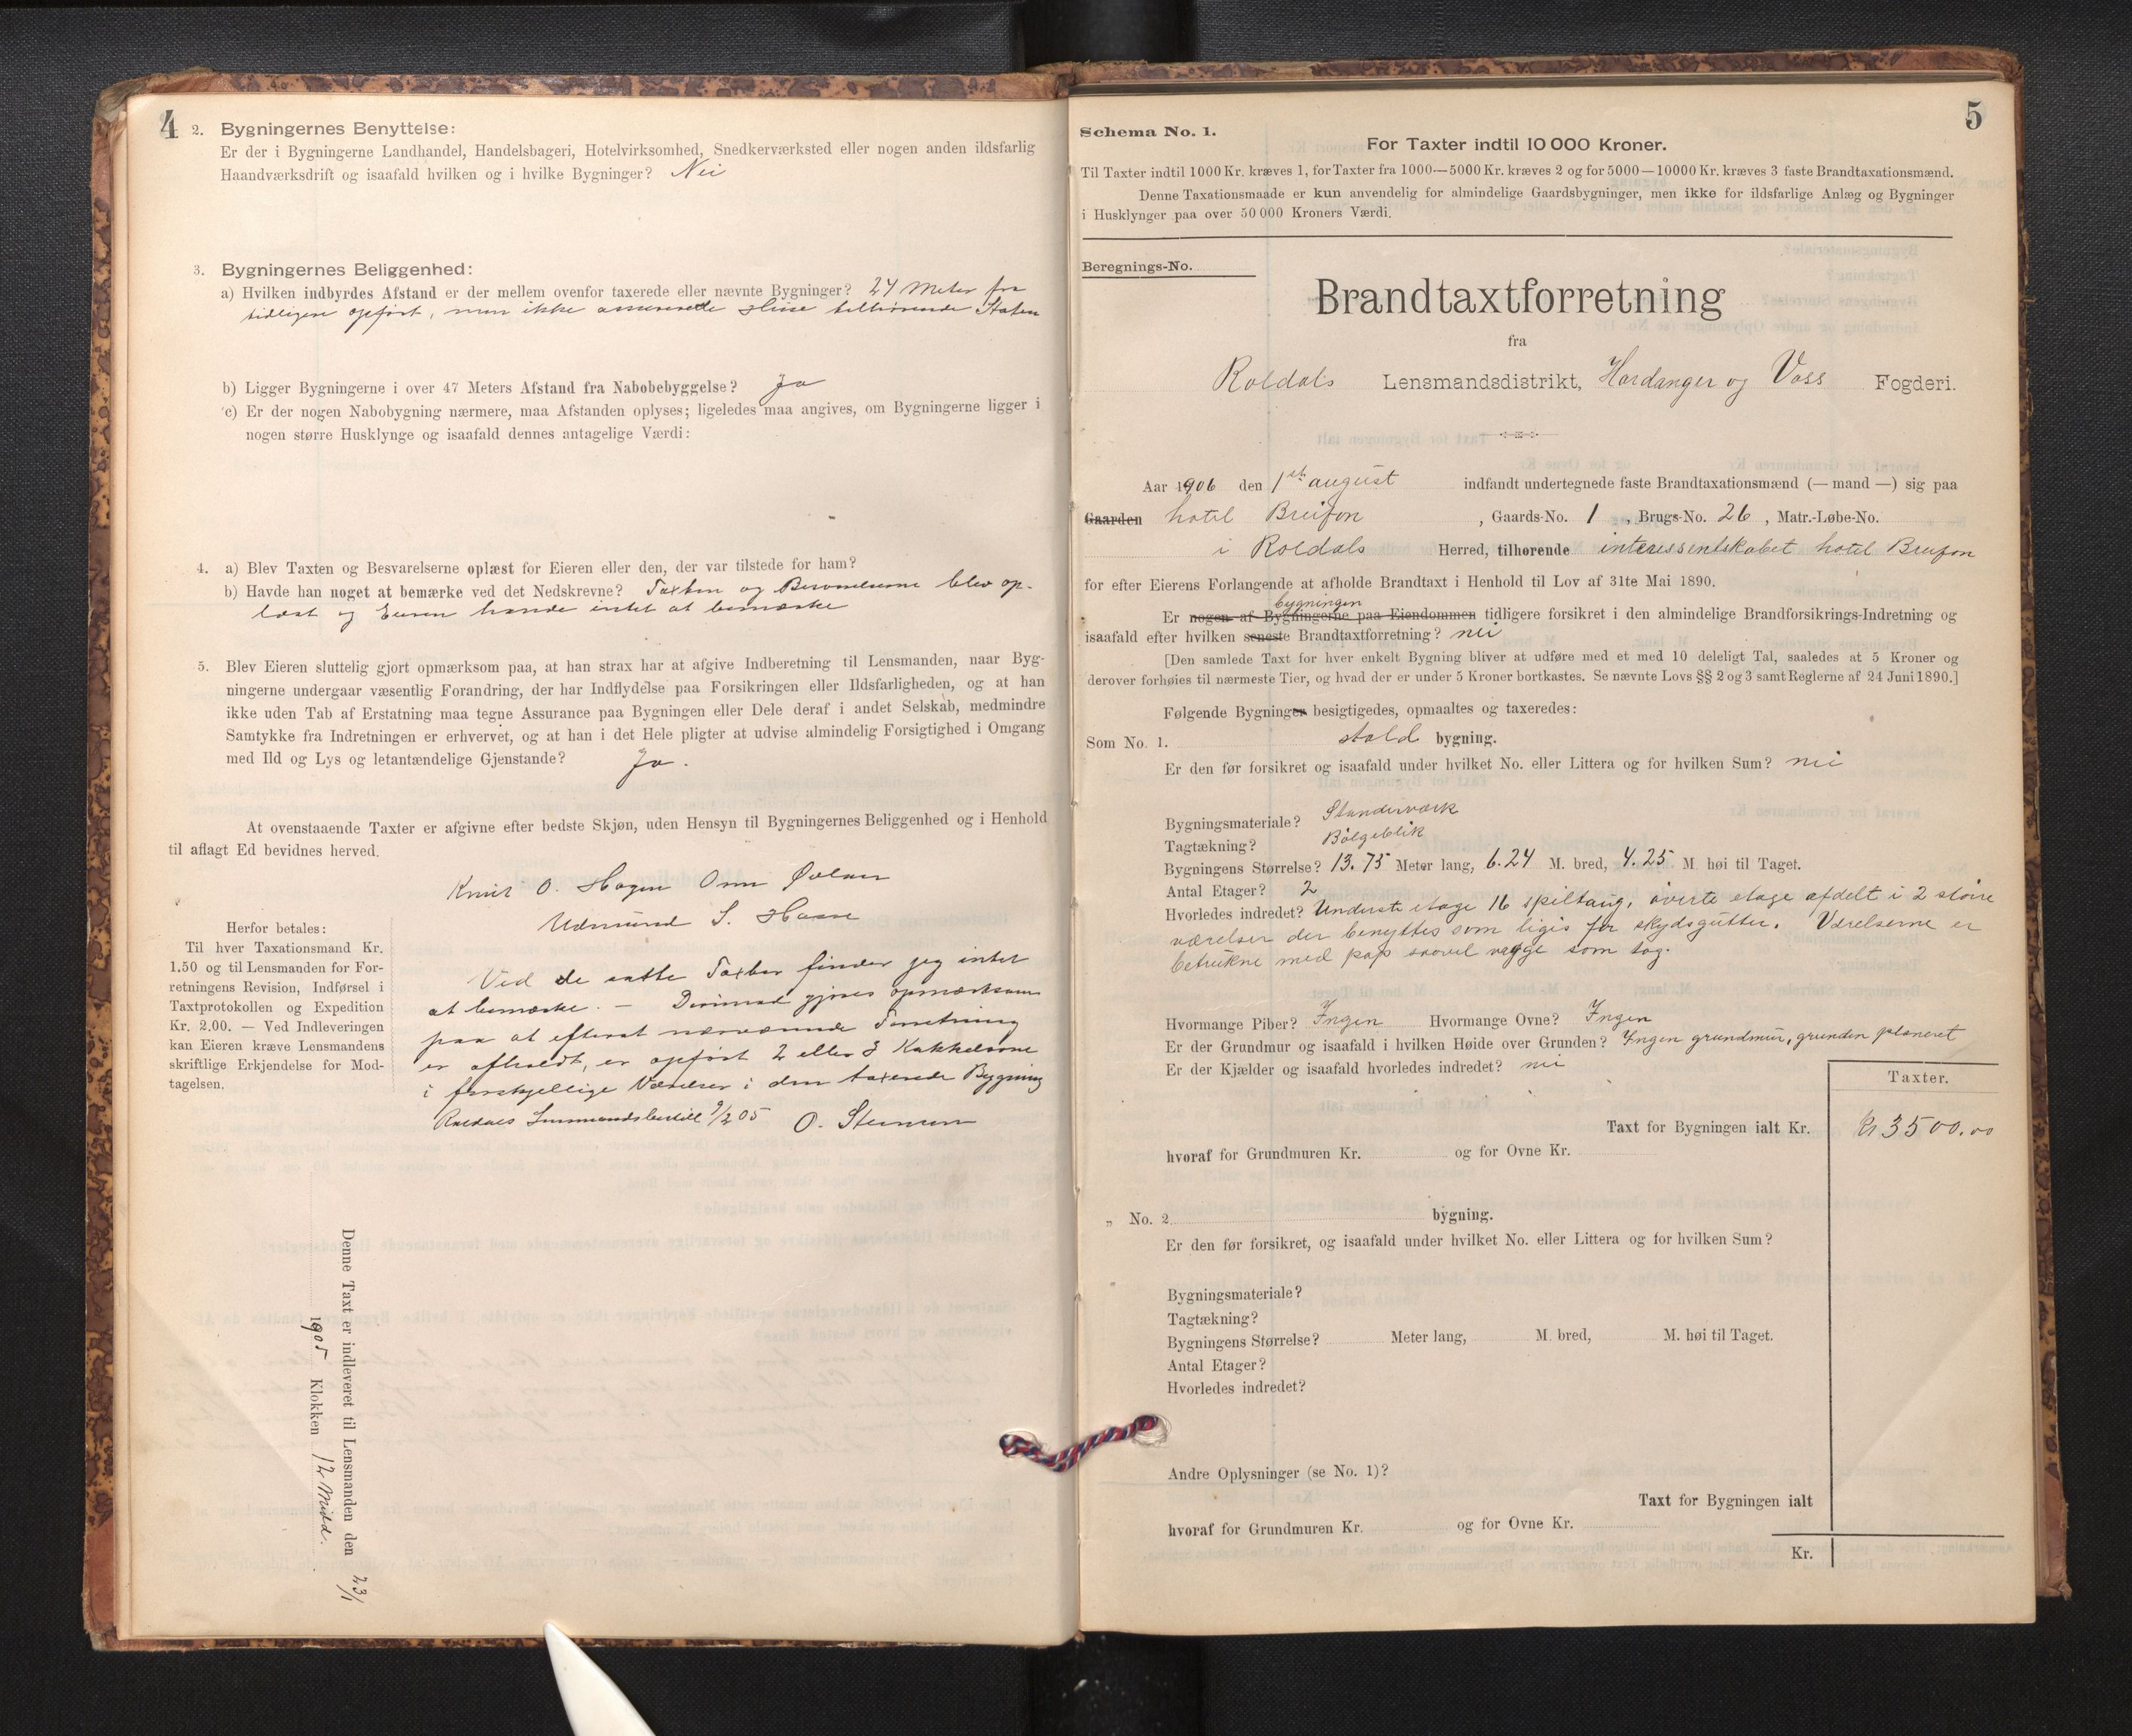 4
2. Bygningernes Benyttelse:
Er der i Bygningerne Landhandel, Handelsbageri, Hotelvirksomhed, Snedkerværksted eller nogen anden ildsfarlig
Haandværksdrift og isaafald hvilken og i hvilke Bygninger? Nei
3. Bygningernes Beliggenhed:
a) Hvilken indbyrdes Afstand er der mellem ovenfor taxerede eller nævnte Bygninger? 24 Meter fra
tidligere opført, men ikke assurerede Huse tilhørende Staten
b) Ligger Bygningerne i over 47 Meters Afstand fra Nabobebyggelse? Ja
c) Er der nogen Nabobygning nærmere, maa Afstanden oplyses; ligeledes maa angives, om Bygningerne ligger i
nogen større Husklynge og isaafald dennes antagelige Værdi:
4. a) Blev Taxten og Besvarelserne oplæst for Eieren eller den, der var tilstede for ham?
b) Havde han noget at bemærke ved det Nedskrevne? Taxten og Besvarelserne blev op-
læst og Eieren havde intet at bemærke
5. Blev Eieren sluttelig gjort opmærksom paa, at han strax har at afgive Indberetning til Lensmanden, naar Byg-
ningerne undergaar væsentlig Forandring, der har Indflydelse paa Forsikringen eller Ildsfarligheden, og at han
ikke uden Tab af Erstatning maa tegne Assurance paa Bygningen eller Dele deraf i andet Selskab, medmindre
Samtykke fra Indretningen er erhvervet, og at han i det Hele pligter at udvise almindelig Forsigtighed i Omgang
med Ild og Lys og letantændelige Gjenstande? Ja.
At ovenstaaende Taxter er afgivne efter bedste Skjøn, uden Hensyn til Bygningernes Beliggenhed og i Henhold
til aflagt Ed bevidnes herved.
Knut O. Hagen
S.
Herfor betales:
Til hver Taxationsmand Kr.
1.50 og til Lensmanden for For-
retningens Revision, Indførsel i
Taxtprotokollen og Expedition
Kr. 2.00. — Ved Indleveringen
kan Eieren kræve Lensmandens
skriftlige Erkjendelse for Mod-
tagelsen.
Ved de satte Taxter finder jeg intet
at bemærke. — Derimod gjøres opmærksom
paa at efterat nærværende Forretning
er afholdt, er opført 2 eller 3 Kakkelovne
i forskjellige Værelser i den taxerede Bygning
Røldals Lensmandsbestill 9/2 05 O.
Denne Taxt er indleveret til Lensmanden den 23/1
1905 Klokken 12 Midd.
5
Schema No. 1.
For Taxter indtil 10 000 Kroner.
Til Taxter indtil 1000 Kr. kræves 1, for Taxter fra 1000—5000 Kr. kræves 2 og for 5000—10000 Kr. kræves 3 faste Brandtaxationsmænd.
Denne Taxationsmaade er kun anvendelig for almindelige Gaardsbygninger, men ikke for ildsfarlige Anlæg og Bygninger
i Husklynger paa over 50 000 Kroners Værdi.
Beregnings-No.
Brandtaxtforretning
fra
Roldals Lensmandsdistrikt, Hardanger og Voss Fogderi.
Aar 1906 den 1st august indfandt undertegnede faste Brandtaxationsmænd (— mand —) sig paa
Gaarden hotel Breifon, Gaards-No. 1, Brugs-No. 26, Matr.-Løbe-No.
i Roldals Herred, tilhørende interessentskabet hotel Breifon
for efter Eierens Forlangende at afholde Brandtaxt i Henhold til Lov af 31te Mai 1890.
bygningen
Er nogen af Bygningerne paa Eiendommen tidligere forsikret i den almindelige Brandforsikrings-Indretning og
isaafald efter hvilken seneste Brandtaxtforretning? nei
[Den samlede Taxt for hver enkelt Bygning bliver at udføre med et med 10 deleligt Tal, saaledes at 5 Kroner og
derover forhøies til nærmeste Tier, og hvad der er under 5 Kroner bortkastes. Se nævnte Lovs §§ 2 og 3 samt Reglerne af 24 Juni 1890.]
Følgende Bygninger besigtigedes, opmaaltes og taxeredes:
Som No. 1. stald bygning.
Er den før forsikret og isaafald under hvilket No. eller Littera og for hvilken Sum? nei
Bygningsmateriale? Standerværk
Tagtækning? Bølgeblik
Bygningens Størrelse? 13.75 Meter lang, 6.24 M. bred, 4.25 M. høi til Taget.
Antal Etager? 2
Hvorledes indredet? Underste etage 16 spiltaug, øverte etage afdelt i 2 støire
værelser der benyttes som ligis for skydsgutter. Værelserne er
betrukne med pap saavel vægge som tag.
Hvormange Piber? Ingen Hvormange Ovne? Ingen
Er der Grundmur og isaafald i hvilken Høide over Grunden? Ingen grundmur, grunden planeret
Er der Kjælder og isaafald hvorledes indredet? nei
Taxter.
Taxt for Bygningen ialt Kr. Kr 3500.00
hvoraf for Grundmuren Kr. og for Ovne Kr.
„ No. 2. bygning.
Er den før forsikret, og isaafald under hvilket No. eller Littera og for hvilken Sum?
Bygningsmateriale?
Tagtækning?
Bygningens Størrelse? Meter lang, M. bred, M. høi til Taget.
Antal Etager?
Hvorledes indredet?
Andre Oplysninger (se No. 1)?
Taxt for Bygningen ialt
hvoraf for Grundmuren Kr. og for Ovne Kr.
Kr.